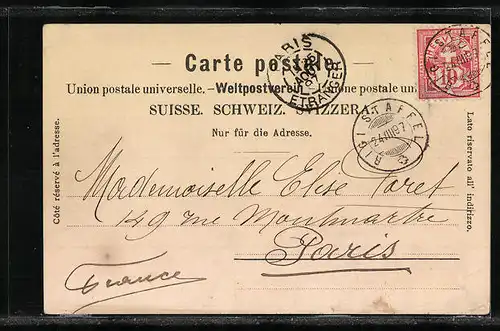 Carte postale.
Union postale universelle. — Weltpostverein. — Unione postale universale.
SUISSE. SCHWEIZ. SVIZZERA.
Nur für die Adresse.
Côté réservé à l'adresse.
Lato riservato all' indirizzo.
PARIS
ETRANGER
RIGI STAFFEL
RIGI STAFFEL
10
Mademoiselle Elise
149 rue Montmartre
Paris
France